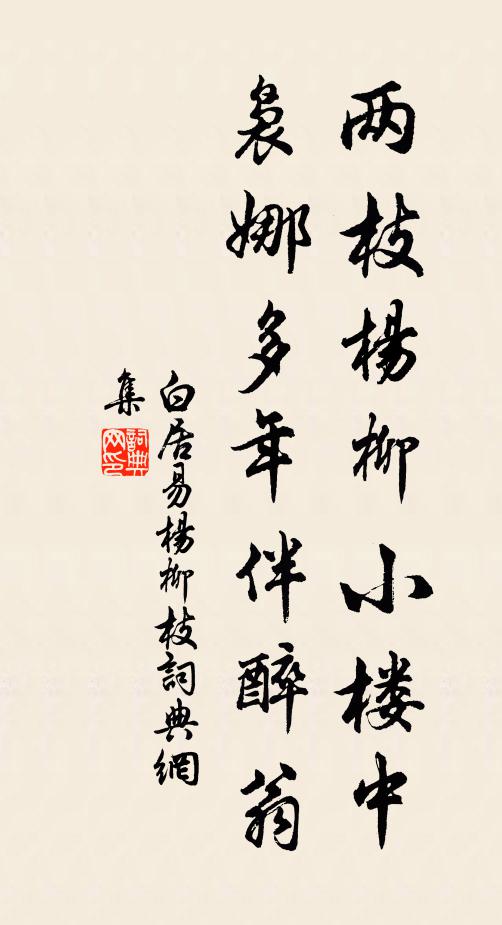 两枝楊柳小楼中
袅娜多年伴醉翁
白居易楊柳枝詞典網
集
詞典
网印